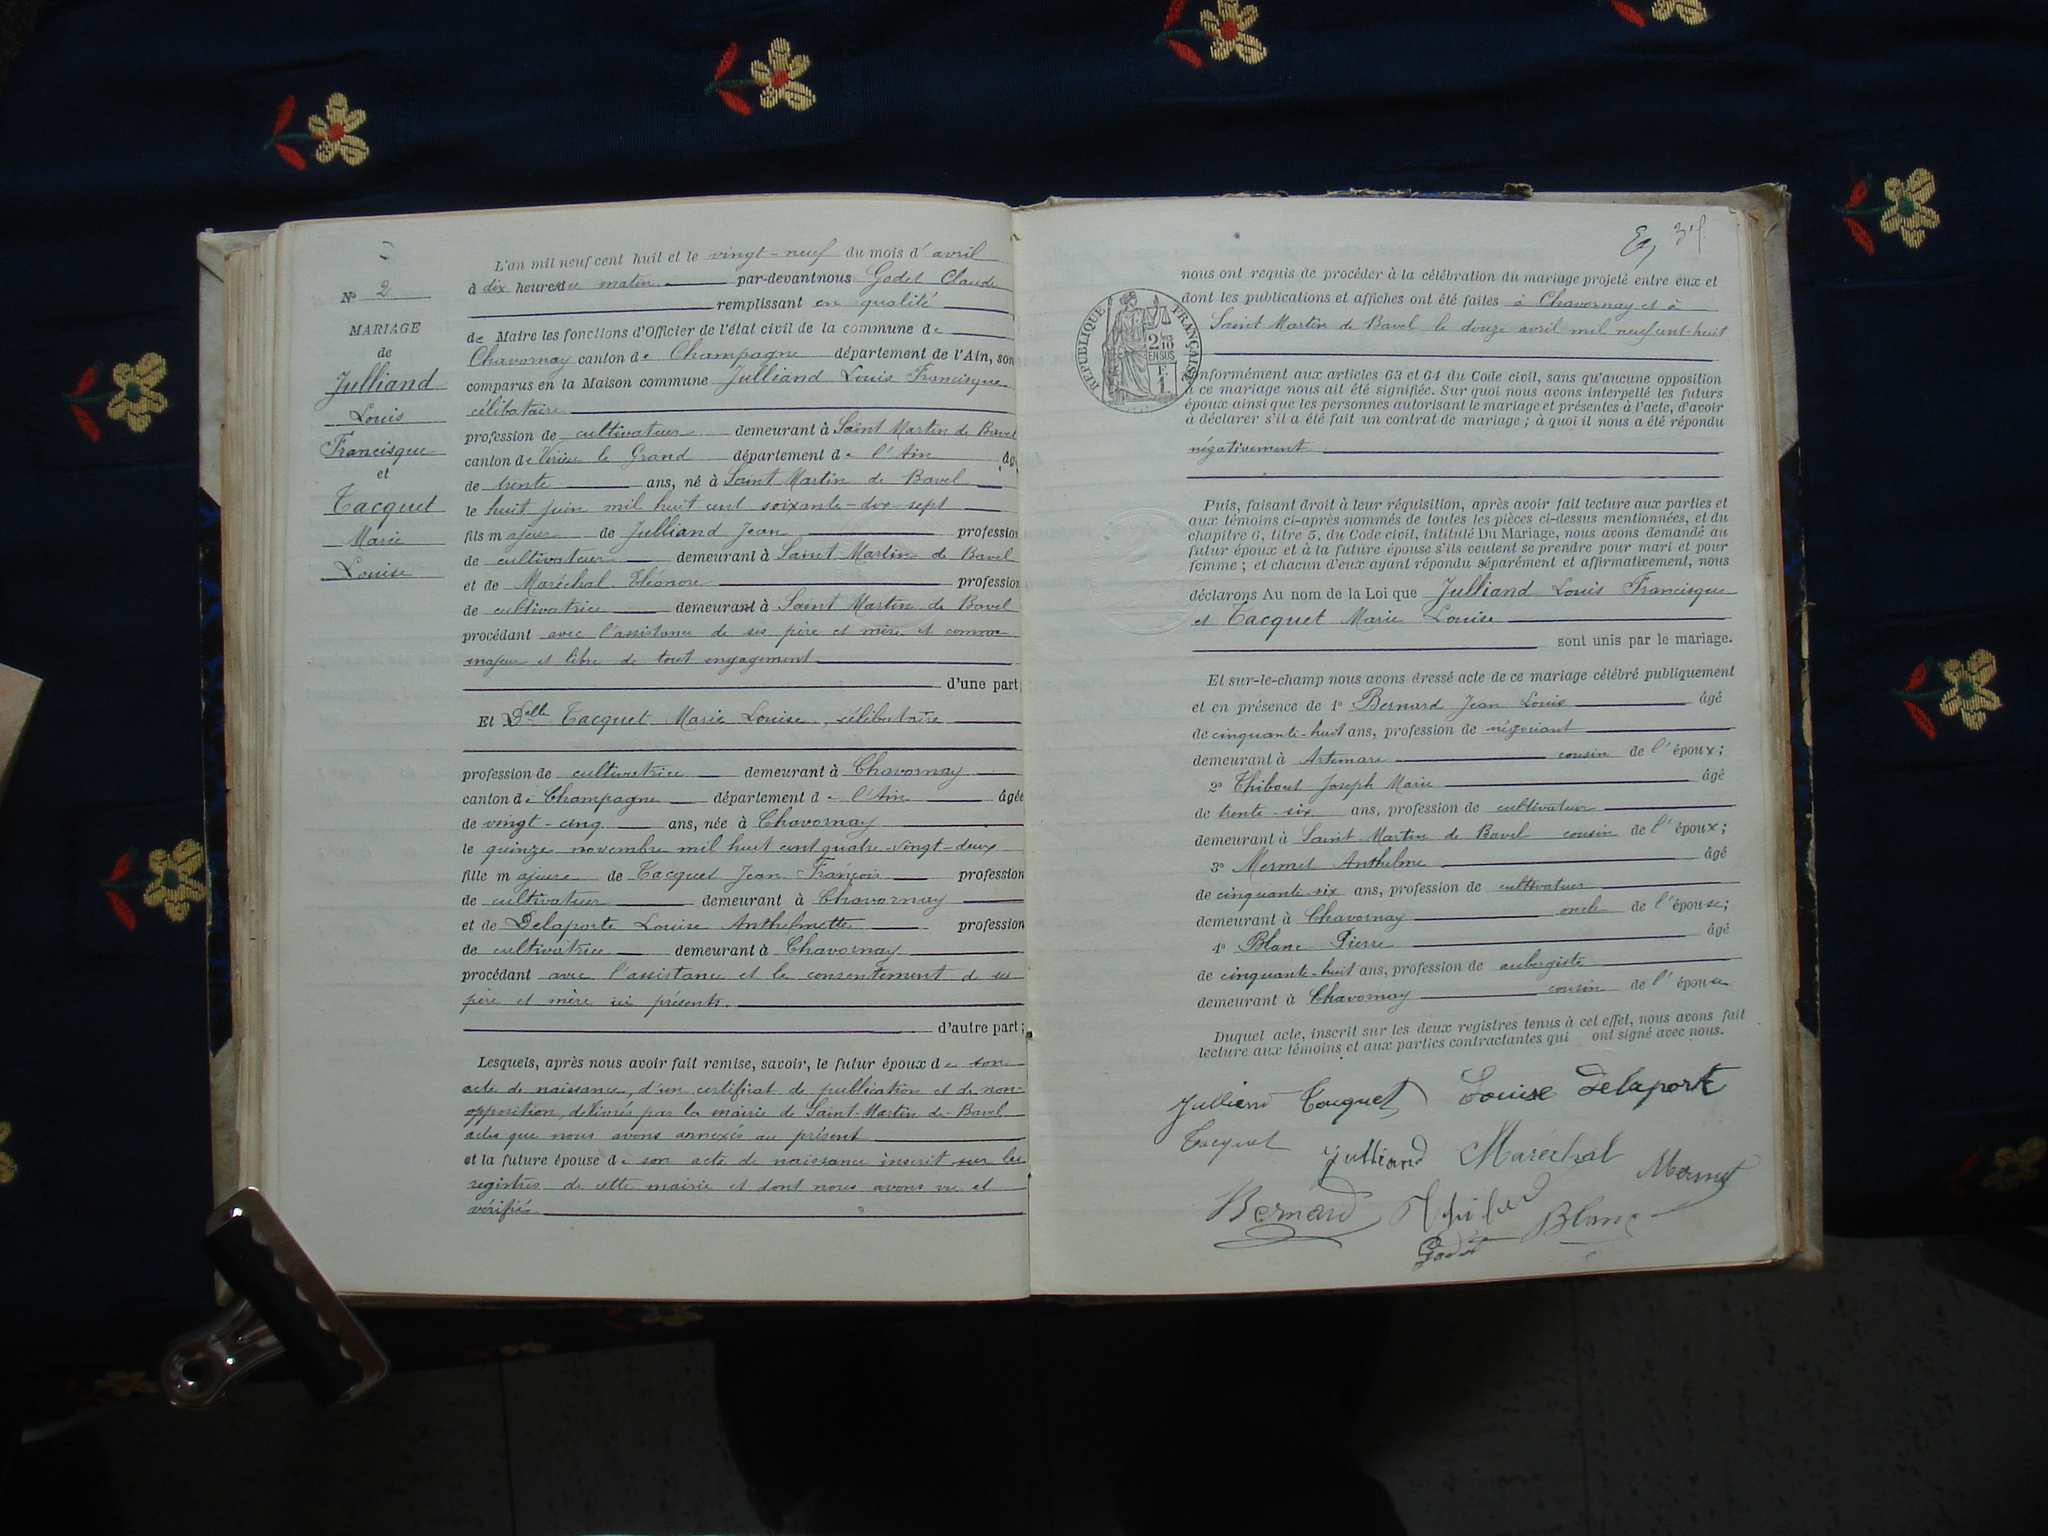 N° 2
MARIAGE
de
Julliand
Louis
Francisque
et
Tacquet
Marie
Louise
L'an mil neuf cent huit et le vingt-neuf du mois d'avril
à dix heures du matin par-devant nous Godet Claude
remplissant en qualité
de Maire les fonctions d'Officier de l'état civil de la commune de
Chavornay canton de Champagne département de l'Ain, son
comparus en la Maison commune Julliand Louis Francisque
célibataire
profession de cultivateur demeurant à Saint Martin de Bavel
canton de Virieu le Grand département de l'Ain âgé
de trente ans, né à Saint Martin de Bavel
le huit juin mil huit cent soixante-dix-sept
fils majeur de Julliand Jean profession
de cultivateur demeurant à Saint Martin de Bavel
et de Maréchal Eléonore profession
de cultivatrice demeurant à Saint Martin de Bavel
procédant avec l'assistance de ses père et mère et comme
majeur et libre de tout engagement
d'une part;
Et Delle Tacquet Marie Louise, célibataire
profession de cultivatrice demeurant à Chavornay
canton de Champagne département de l'Ain âgée
de vingt-cinq ans, née à Chavornay
le quinze novembre mil huit cent quatre-vingt-deux
fille majeure de Tacquet Jean François profession
de cultivateur demeurant à Chavornay
et de Delaporte Louise Anthelmette profession
de cultivatrice demeurant à Chavornay
procédant avec l'assistance et le consentement de ses
père et mère ici présents.
d'autre part;
Lesquels, après nous avoir fait remise, savoir, le futur époux de son
acte de naissance, d'un certificat de publication et de non-
opposition, délivrés par la mairie de Saint-Martin-de-Bavel
actes que nous avons annexés au présent
et la future épouse de son acte de naissance inscrit sur les
registres de cette mairie et dont nous avons vu et
vérifié
RÉPUBLIQUE FRANÇAISE
2/10
EN SUS
nous ont requis de procéder à la célébration du mariage projeté entre eux et
dont les publications et affiches ont été faites à Chavornay et à
Saint Martin de Bavel le douze avril mil neuf cent-huit
conformément aux articles 63 et 64 du Code civil, sans qu'aucune opposition
à ce mariage nous ait été signifiée. Sur quoi nous avons interpellé les futurs
époux ainsi que les personnes autorisant le mariage et présentes à l'acte, d'avoir
à déclarer s'il a été fait un contrat de mariage; à quoi il nous a été répondu
négativement
Puis, faisant droit à leur réquisition, après avoir fait lecture aux parties et
aux témoins ci-après nommés de toutes les pièces ci-dessus mentionnées, et du
chapitre 6, titre 5, du Code civil, intitulé Du Mariage, nous avons demandé au
futur époux et à la future épouse s'ils veulent se prendre pour mari et pour
femme; et chacun d'eux ayant répondu séparément et affirmativement, nous
déclarons Au nom de la Loi que Julliand Louis Francisque
et Tacquet Marie Louise
sont unis par le mariage.
Et sur-le-champ nous avons dressé acte de ce mariage célébré publiquement
et en présence de 1° Bernard Jean Louis âgé
de cinquante-huit ans, profession de négociant
demeurant à Artemare cousin de l'époux;
2° Thibout Joseph Marie âgé
de trente-six ans, profession de cultivateur
demeurant à Saint Martin de Bavel cousin de l'époux;
3° Mermet Anthelme âgé
de cinquante-six ans, profession de cultivateur
demeurant à Chavornay oncle de l'épouse;
4° Blanc Pierre âgé
de cinquante-huit ans, profession de aubergiste
demeurant à Chavornay cousin de l'épouse
Duquel acte, inscrit sur les deux registres tenus à cet effet, nous avons fait
lecture aux témoins et aux parties contractantes qui ont signé avec nous.
Julliand Tacquet Louise Delaporte
Tacquet Julliand Maréchal Mermet
Bernard Blanc
Godet